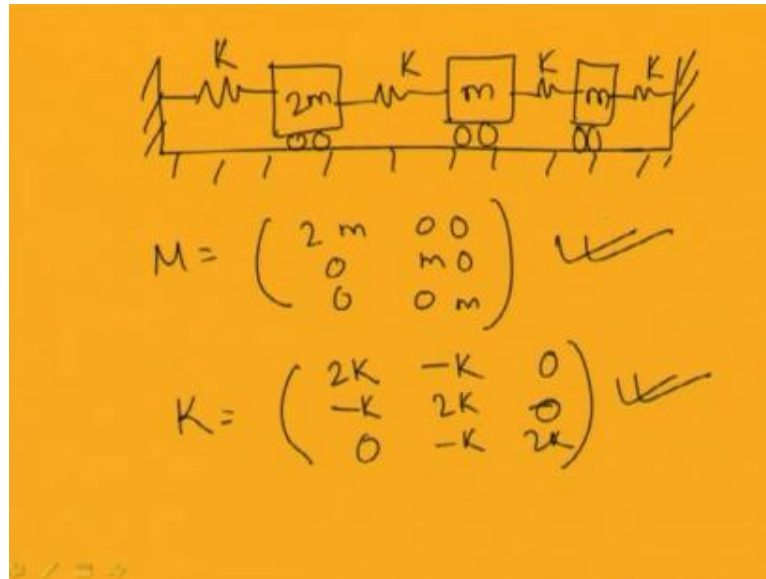 K K K K
2m m m
M = ( 2m 0 0
0 m 0
0 0 m )
K = ( 2K -K 0
-K 2K 0
0 -K 2K )